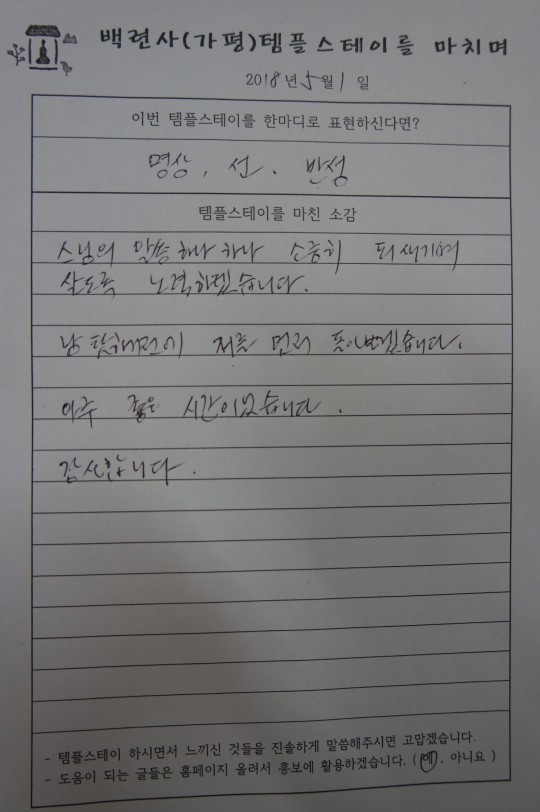 백련사(가평)템플스테이를 마치며
2018년 5월 1일
이번 템플스테이를 한마디로 표현하신다면?
명상, 선. 반성
템플스테이를 마친 소감
스님의 말씀 하나 하나 소중히 되새기며
살도록 노력하겠습니다.
남 탓하기전에 저를 먼저 돌아보겠습니다.
아주 좋은 시간이었습니다.
감사합니다.
- 템플스테이 하시면서 느끼신 것들을 진솔하게 말씀해주시면 고맙겠습니다.
- 도움이 되는 글들은 홈페이지 올려서 홍보에 활용하겠습니다. (예, 아니요)